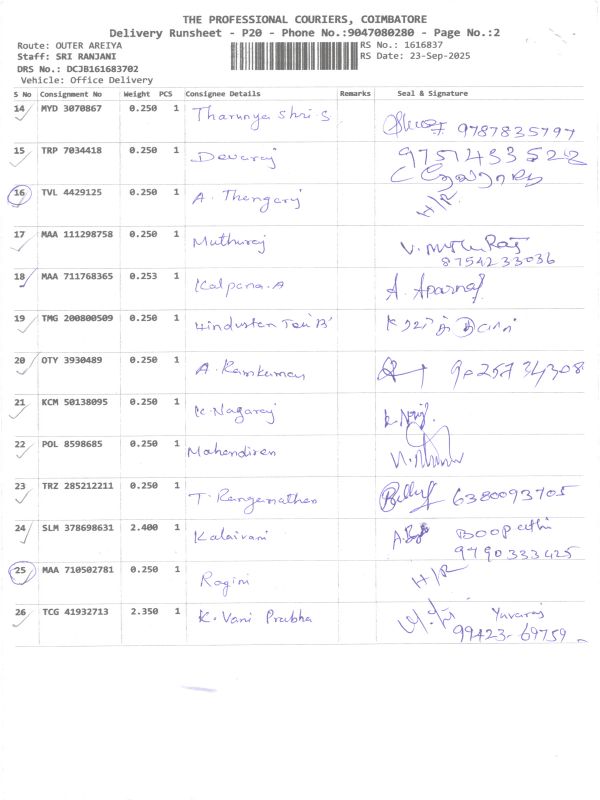 THE PROFESSIONAL COURIERS, COIMBATORE
Delivery Runsheet - P20 - Phone No.:9047080280 - Page No.:2
Route: OUTER AREIYA
RS No.: 1616837
Staff: SRI RANJANI
RS Date: 23-Sep-2025
DRS No.: DCJB161683702
Vehicle: Office Delivery
S No Consignment No Weight PCS Consignee Details Remarks Seal & Signature
14 MYD 3070867 0.250 1 Tharunya Shri.S
9787835797
15 TRP 7034418 0.250 1 Devaraj
9751433522
16 TVL 4429125 0.250 1 A. Thengaraj H/R.
17 MAA 111298758 0.250 1 Muthuraj
8754233036
18 MAA 711768365 0.253 1 Kalpana.A A. Aparna
19 TMG 200800509 0.250 1 Hindustan
20 OTY 3930489 0.250 1 A. Ramkumar 9025734308
21 KCM 50138095 0.250 1 K. Nagaraj
22 POL 8598685 0.250 1 Mahendiren
23 TRZ 285212211 0.250 1 T. Renganathan 6380093705
24 SLM 378698631 2.400 1 Kalaivani Boopathi
9790333425
25 MAA 710502781 0.250 1 Ragini H/R
26 TCG 41932713 2.350 1 K. Vani Prabha Yuvaraj
99423-69759